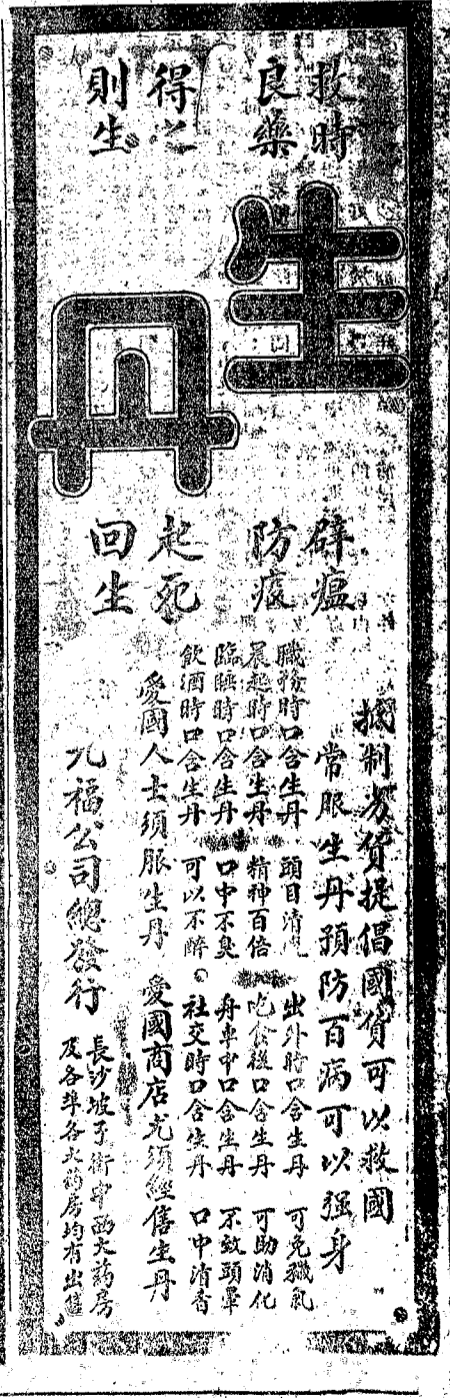 救時
良藥
得之
則生
生丹
辟瘟
防疫
起死
回生
抵制劣貨提倡國貨可以救國
常服生丹預防百病可以强身
職務時口含生丹 頭目清 出外時口含生丹 可免穢氣
晨起時口含生丹 精神百倍 吃食後口含生丹 可助消化
臨睡時口含生丹 口中不臭 舟車中口含生丹 不致頭暈
飲酒時口含生丹 可以不醉 社交時口含生丹 口中清香
愛國人士須服生丹 愛國商店尤須經售生丹
九福公司總發行
長沙坡子街中西大藥房
及各埠各大藥房均有出售